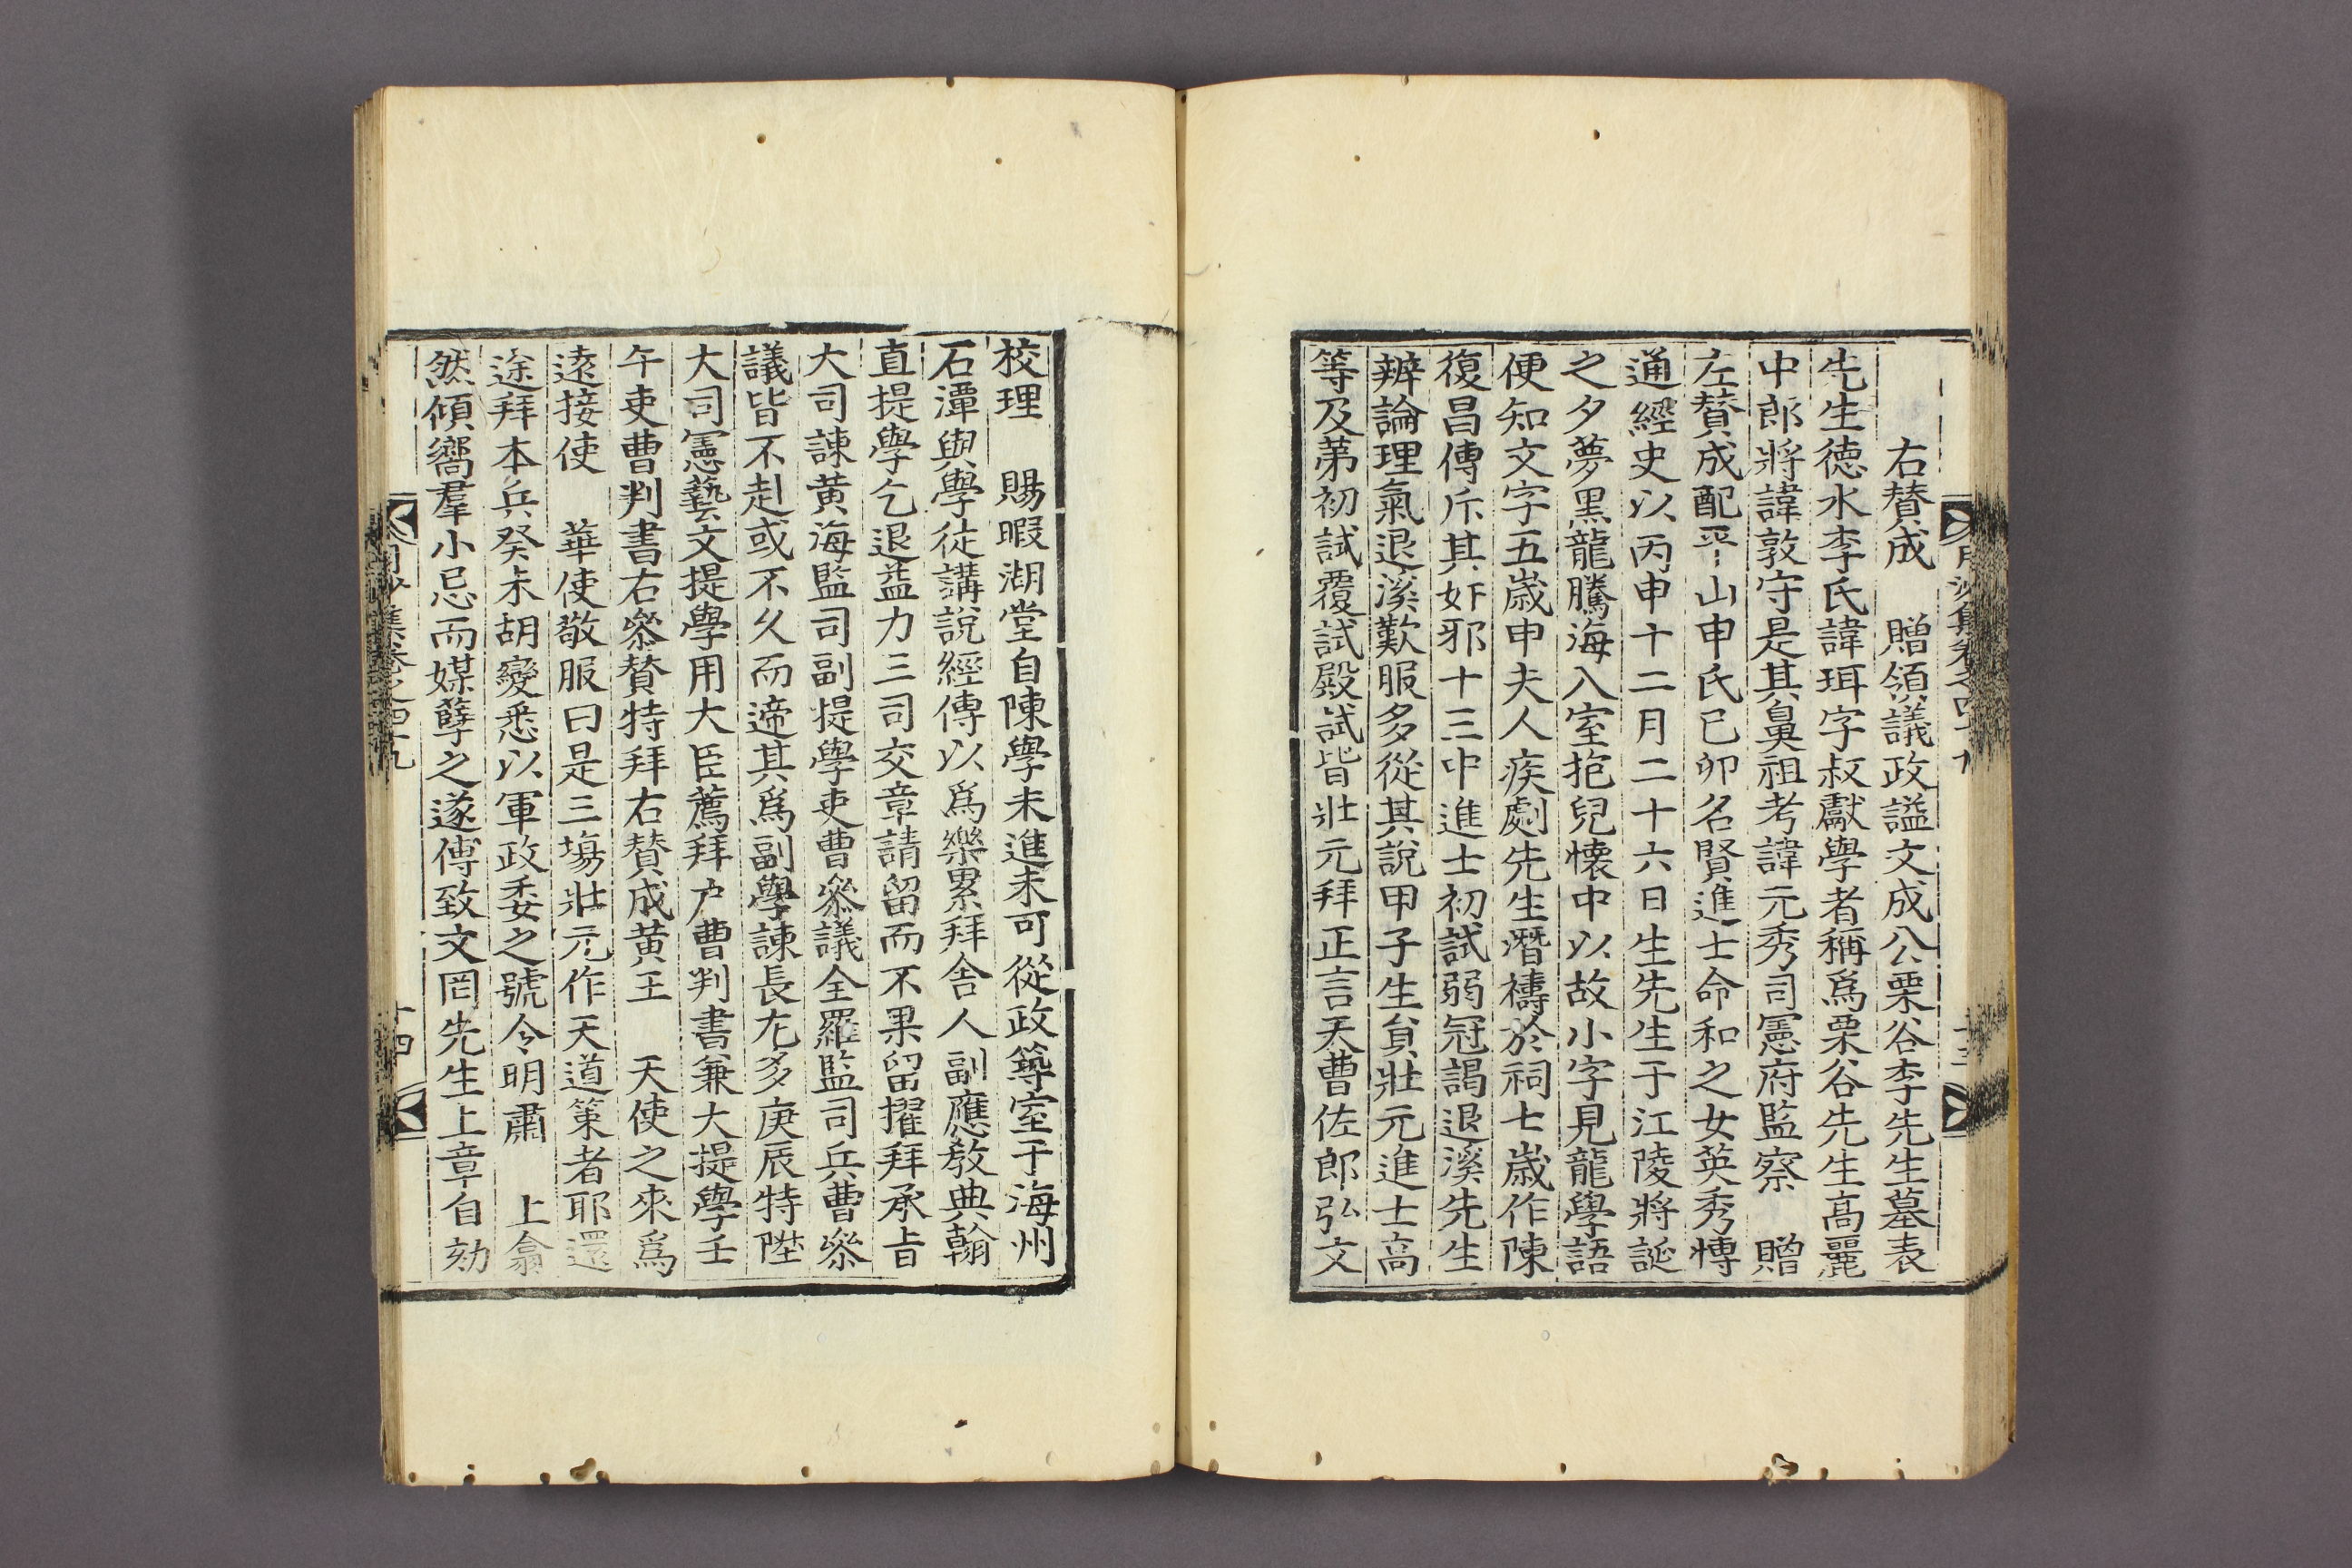 右賛成　贈領議政謚文成公栗谷李先生墓表
先生德水李氏諱珥字叔獻學者稱爲栗谷先生高麗
中郎將諱敦守是其鼻祖考諱元秀司憲府監察　贈
左賛成配平山申氏已卯名賢進士命和之女英秀愽
通經史以丙申十二月二十六日生先生于江陵將誕
之夕夢黑龍騰海入室抱兒懷中以故小字見龍學語
便知文字五歲申夫人疾劇先生潛禱於祠七歲作陳
復昌傳斥其奸邪十三中進士初試弱冠謁退溪先生
辨論理氣退溪歎服多從其說甲子生貟壯元進士高
等及苐初試覆試殿試皆壯元拜正言天曹佐郎弘文
校理　賜暇湖堂自陳學未進未可從政築室于海州
石潭與學徒講說經傳以爲樂累拜舍人副應敎典翰
直提學乞退益力三司交章請留而不果留擢拜承旨
大司諫黃海監司副提學吏曹叅議全羅監司兵曹叅
議皆不赴或不久而遞其爲副學諫長尢多庚辰特陞
大司憲藝文提學用大臣薦拜户曹判書兼大提學壬
午吏曹判書右叅賛特拜右賛成黃王　天使之來爲
遠接使　華使敬服曰是三塲壯元作天道策者耶還
途拜本兵癸未胡變悉以軍政委之號令明肅　上翕
然傾嚮羣小忌而媒孼之遂傅致文罔先生上章自劾
月沙集卷之四十九
十四